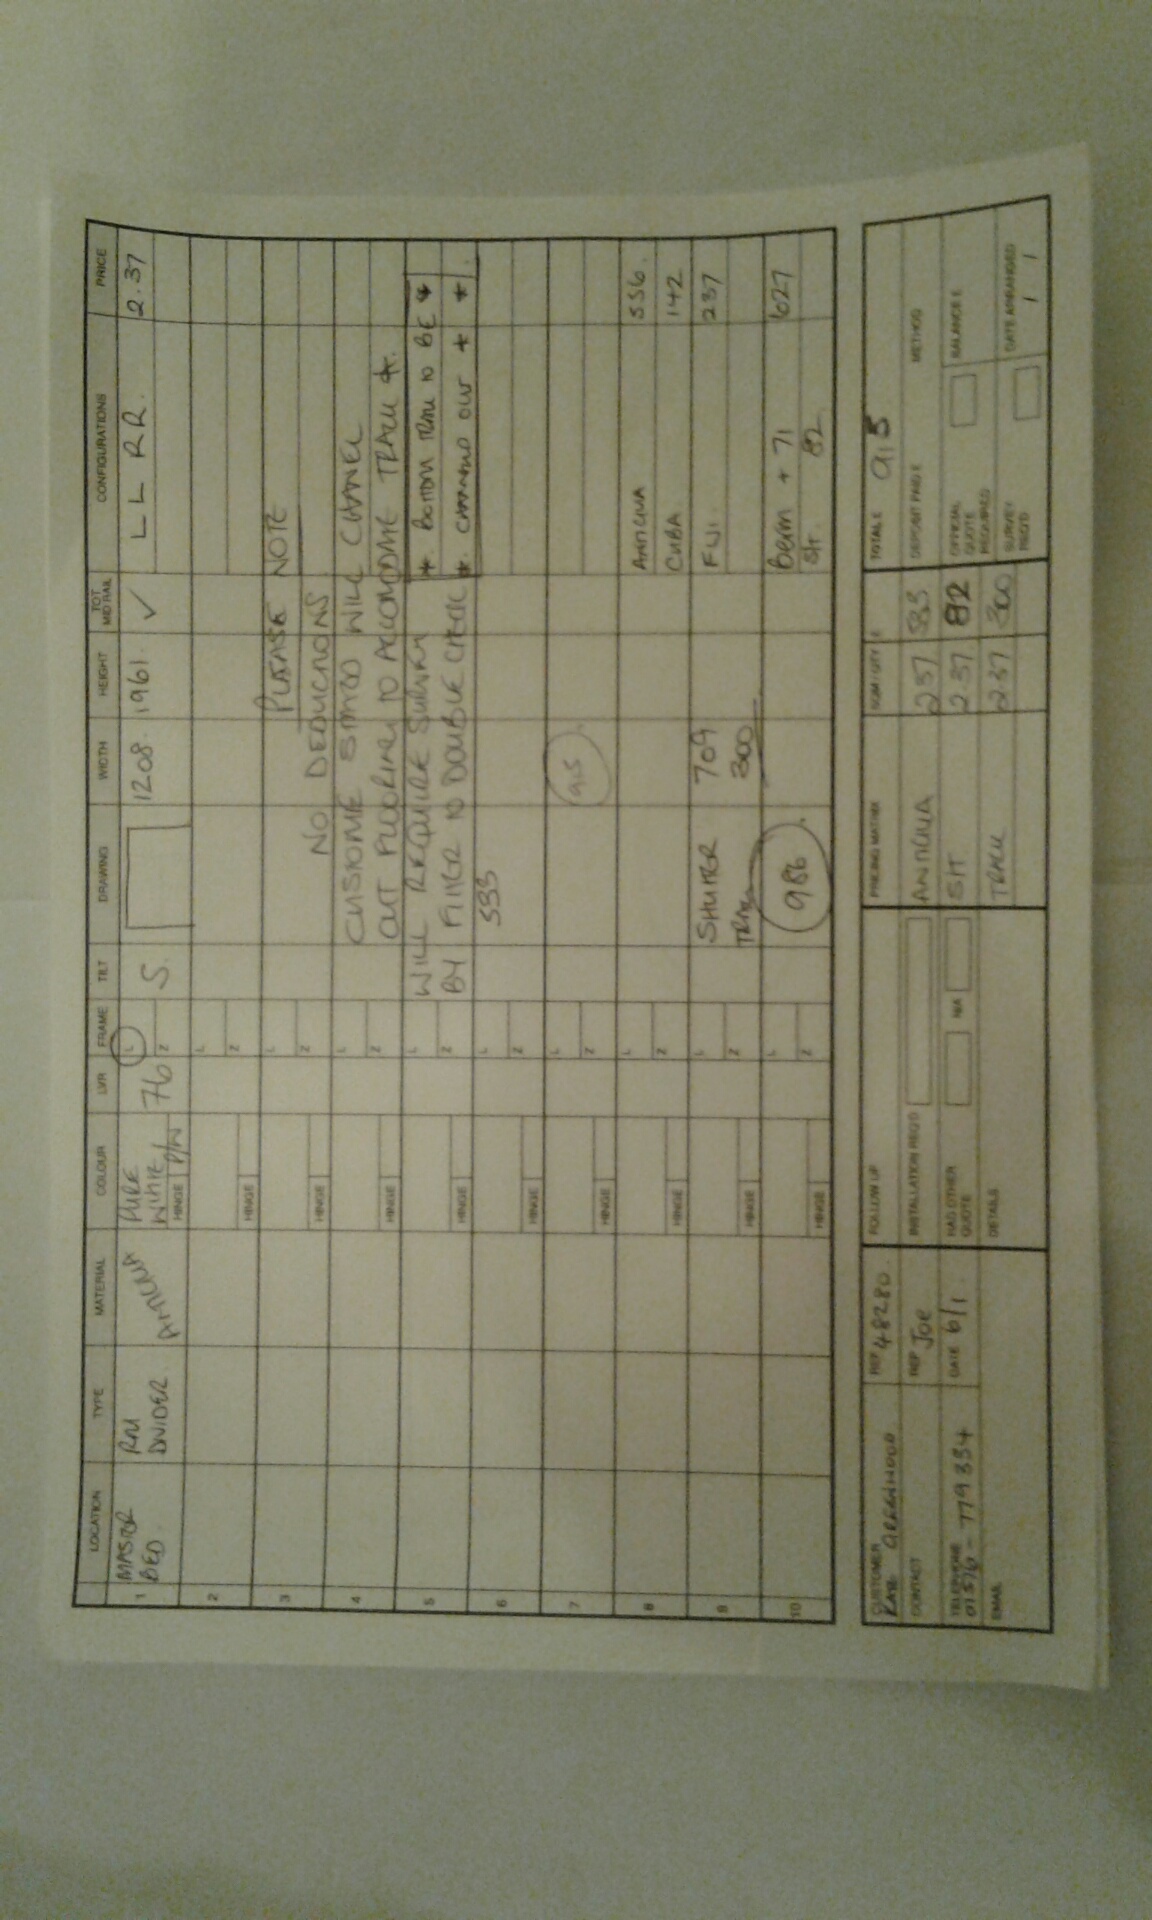 LOCATION TYPE MATERIAL COLOUR LVR FRAME TILT DRAWING WIDTH HEIGHT TOT MID RAIL CONFIGURATIONS PRICE
1 MASTER BED. RM DIVIDER PURE WHITE HINGE P/W 76 L Z S. 1208. 1961. ✓ L L R R. 2.37
2 HINGE L Z
3 HINGE L Z
PLEASE NOTE
NO DEDUCTIONS
4 HINGE L Z
CUSTOME STATED WILL CHANEL
OUT FLOORING TO ACCOMODME TRACK *.
5 HINGE L Z
WILL REQUIRE SURVEY * BOTTOM TRACK TO BE *
BY FITTER TO DOUBLE CHECK * CHANNED OUT * *
6 HINGE L Z
533
7 HINGE L Z
915
8 HINGE L Z
ANTIGUA 556.
CUBA 142
9 HINGE L Z
SHUTTER 709 FIJI. 237
TRACK 300
10 HINGE L Z
986 Berm + 71 627
SIT. 82
CUSTOMER GREENWOOD REF 48280. FOLLOW UP PRICING MATRIX SQM / QTY £ TOTAL £ 915
CONTACT REP JOE INSTALLATION REQ'D ANTIGUA 237 533 DEPOSIT PAID £ METHOD
TELEPHONE 779334 DATE 6/1. HAD OTHER QUOTE N/A SIT 2.37 82 OFFICIAL QUOTE REQUIRED BALANCE £
EMAIL DETAILS TRACK 2.37 300 SURVEY REQ'D DATE ARRANGED / /